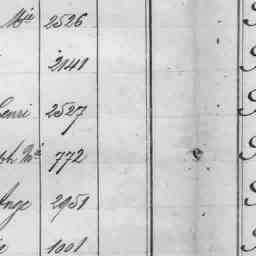 Mie 2526
2141
Henri 2527
ph Me 772
Ange 2951
1001